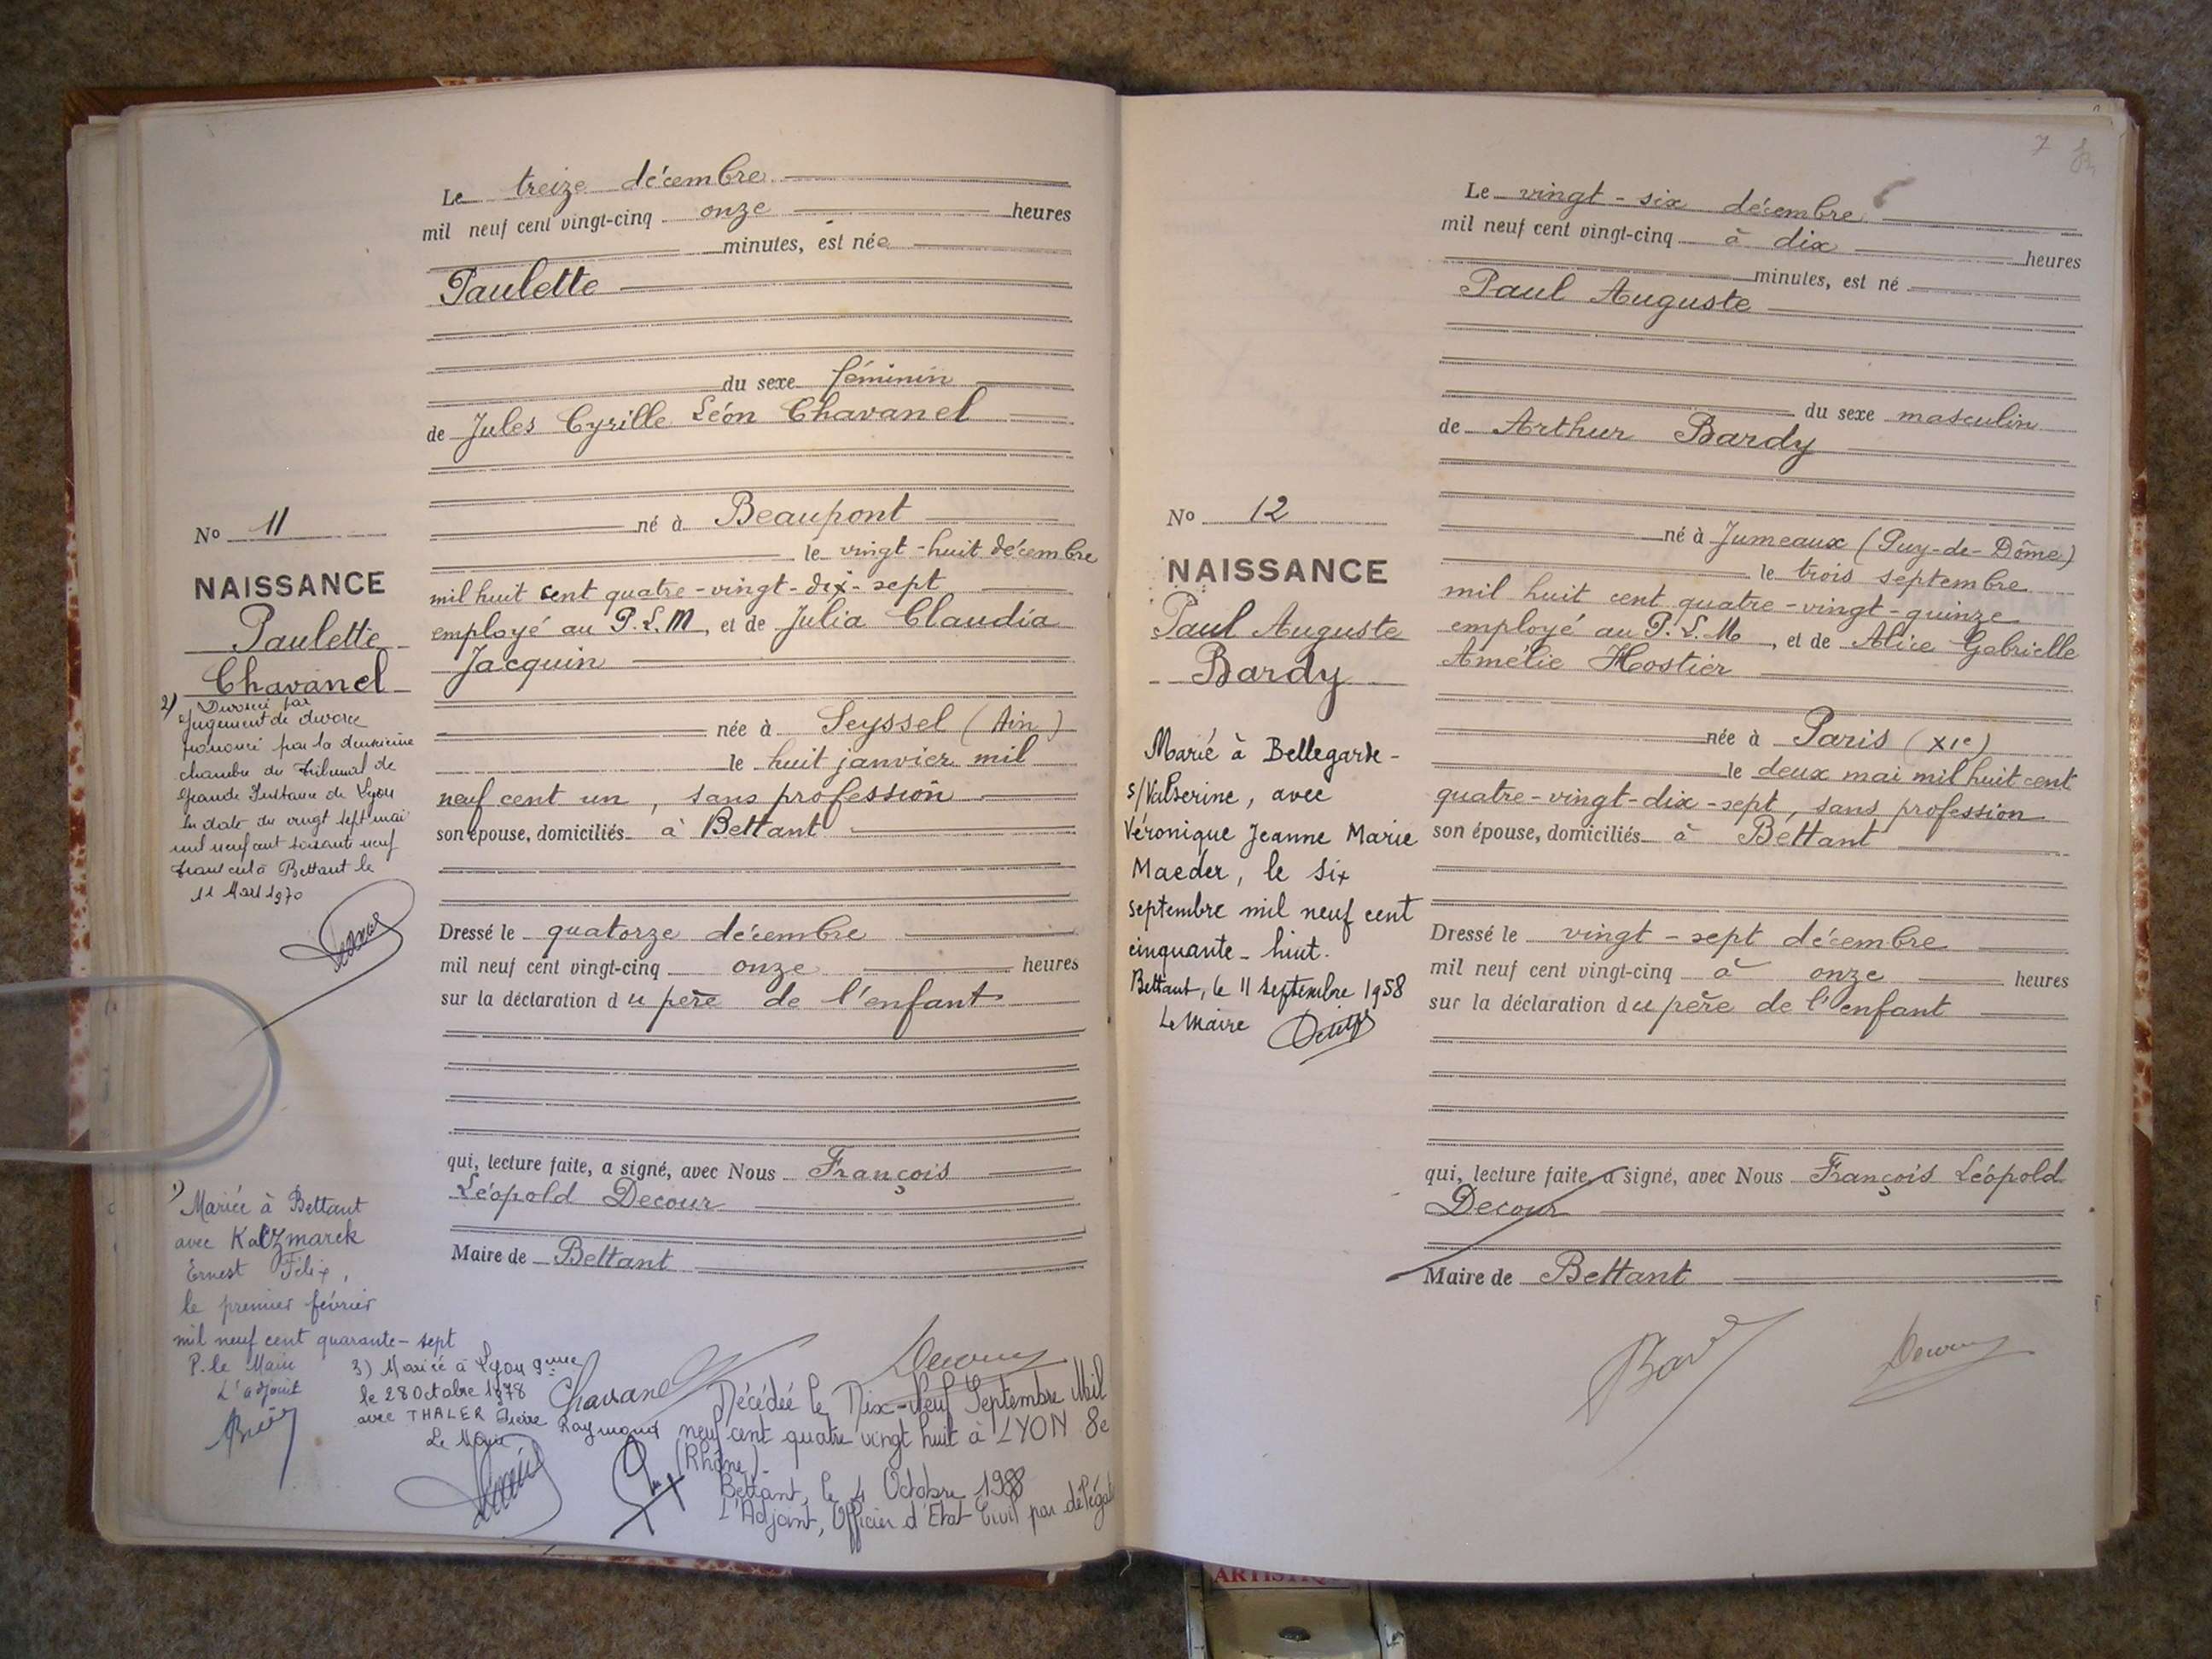 Le treize décembre
mil neuf cent vingt-cinq onze heures
minutes, est née
Paulette
du sexe féminin
de Jules Cyrille Léon Chavanel
né à Beaupont
le vingt-huit décembre
mil huit cent quatre-vingt-dix-sept
employé au P.L.M, et de Julia Claudia
Jacquin
née à Seyssel (Ain)
le huit janvier mil
neuf cent un, sans profession
son épouse, domiciliés à Bettant
Dressé le quatorze décembre
mil neuf cent vingt-cinq onze heures
sur la déclaration du père de l'enfant
qui, lecture faite, a signé, avec Nous François
Léopold Decour
Maire de Bettant
Chavanel
Decour
No 11
NAISSANCE
Paulette
Chavanel
2) Divorcé par
Jugement de divorce
prononcé par la deuxième
chambre du Tribunal de
Grande Instance de Lyon
en date du vingt sept mai
mil neuf cent soixante neuf
à Bettant le
11 Mars 1970
1) Mariée à Bettant
avec Kaczmarek
Ernest Félix,
le premier février
mil neuf cent quarante-sept
P. le Maire
L'adjoint
3) Mariée à Lyon 9ème
le 28 Octobre 1978
avec THALER Pierre
Raymond
Le Maire
Décédée le Dix-Neuf Septembre Mil
neuf cent quatre vingt huit à LYON 8e
(Rhône).
Bettant, le 4 Octobre 1988
L'Adjoint, Officier d'Etat Civil par délégat
7
Le vingt-six décembre
mil neuf cent vingt-cinq à dix heures
minutes, est né
Paul Auguste
du sexe masculin
de Arthur Bardy
né à Jumeaux (Puy-de-Dôme)
le trois septembre
mil huit cent quatre-vingt-quinze
employé au P.L.M, et de Alice Gabrielle
Amélie Hostier
née à Paris (XIe)
le deux mai mil huit cent
quatre-vingt-dix-sept, sans profession
son épouse, domiciliés à Bettant
Dressé le vingt-sept décembre
mil neuf cent vingt-cinq à onze heures
sur la déclaration du père de l'enfant
qui, lecture faite, a signé, avec Nous François Léopold
Decour
Maire de Bettant
Decour
No 12
NAISSANCE
Paul Auguste
Bardy
Marié à Bellegarde-
s/Valserine, avec
Véronique Jeanne Marie
Maeder, le six
septembre mil neuf cent
cinquante-huit.
Bettant, le 11 septembre 1958
Le Maire